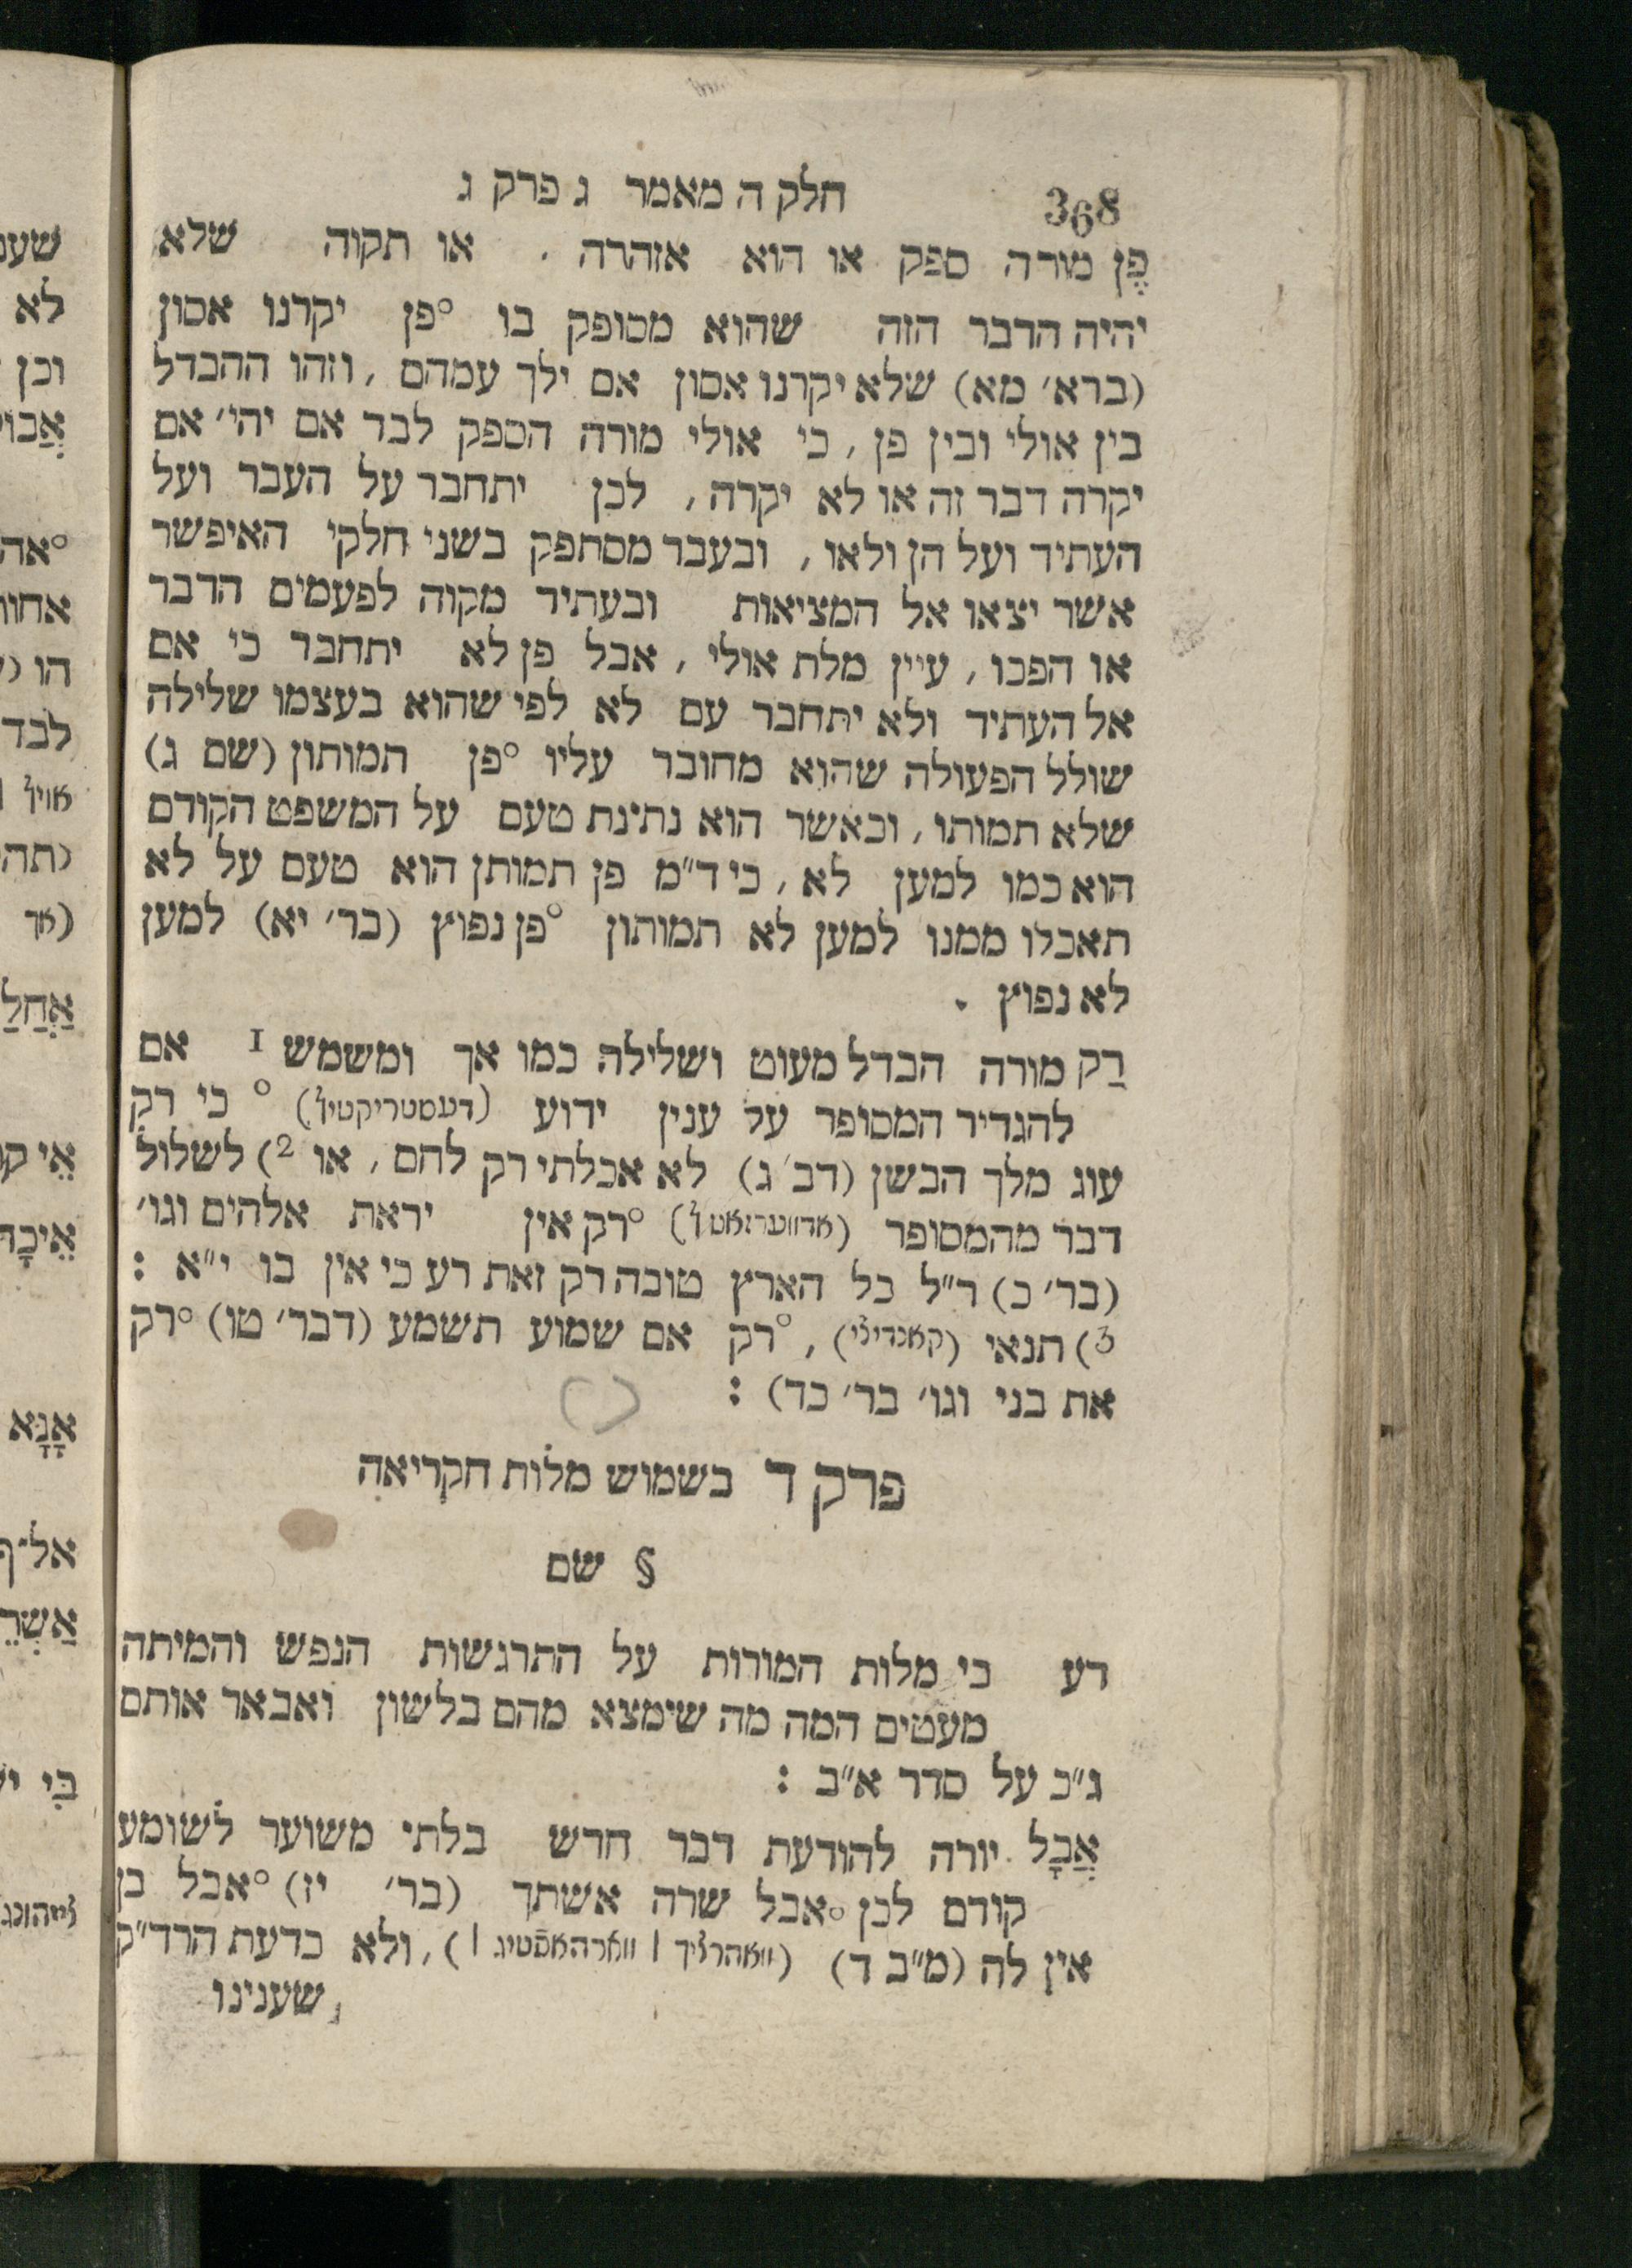 368 חלק ה מאמר ג פרק ג
פֶּן מורה ספק או הוא אזהרה . או תקוה שלא
יהיה הדבר הזה שהוא מסופק בו °פן יקרנו אסון
(ברא׳ מא) שלא יקרנו אסון אם ילך עמהם , וזהו ההבדל
בין אולי ובין פן , כי אולי מורה הספק לבד אם יהי׳ אם
יקרה דבר זה או לא יקרה , לכן יתחבר על העבר ועל
העתיד ועל הן ולאו , ובעבר מסתפק בשני חלקי האיפשר
אשר יצאו אל המציאות ובעתיד מקוה לפעמים הדבר
או הפכו , עיין מלת אולי , אבל פן לא יתחבר כי אם
אל העתיד ולא יתחבר עם לא לפי שהוא בעצמו שלילה
שולל הפעולה שהוא מחובר עליו °פן תמותון (שם ג)
שלא תמותו , וכאשר הוא נתינת טעם על המשפט הקודם
הוא כמו למען לא , כי ד״מ פן תמותן הוא טעם על לא
תאכלו ממנו למען לא תמותון °פן נפוץ (בר׳ יא) למען
לא נפוץ .
רַק מורה הבדל מעוט ושלילה כמו אך ומשמש 1 אם
להגדיר המסופר על ענין ידוע (דעסטריקטיף) ° כי רק
עוג מלך הבשן (דב׳ ג) לא אכלתי רק לחם , או 2) לשלול
דבר מהמסופר (אדווערזאטיף) °רק אין יראת אלהים וגו׳
(בר׳ כ) ר״ל כל הארץ טובה רק זאת רע כי אין בו י״א :
3) תנאי (קאנדיצי) , °רק אם שמוע תשמע (דבר׳ טו) °רק
את בני וגו׳ בר׳ כד) :
פרק ד בשמוש מלות הקריאה
§ שם
דע כי מלות המורות על התרגשות הנפש והמיתה
מעטים המה מה שימצא מהם בלשון ואבאר אותם
ג״כ על סדר א״ב :
אֲבָל יורה להודעת דבר חדש בלתי משוער לשומע
קודם לכן °אבל שרה אשתך (בר׳ יז) °אבל בן
אין לה (מ״ב ד) (וואהרליך | ווארהאפטיג |) , ולא כדעת הרד״ק
שענינו